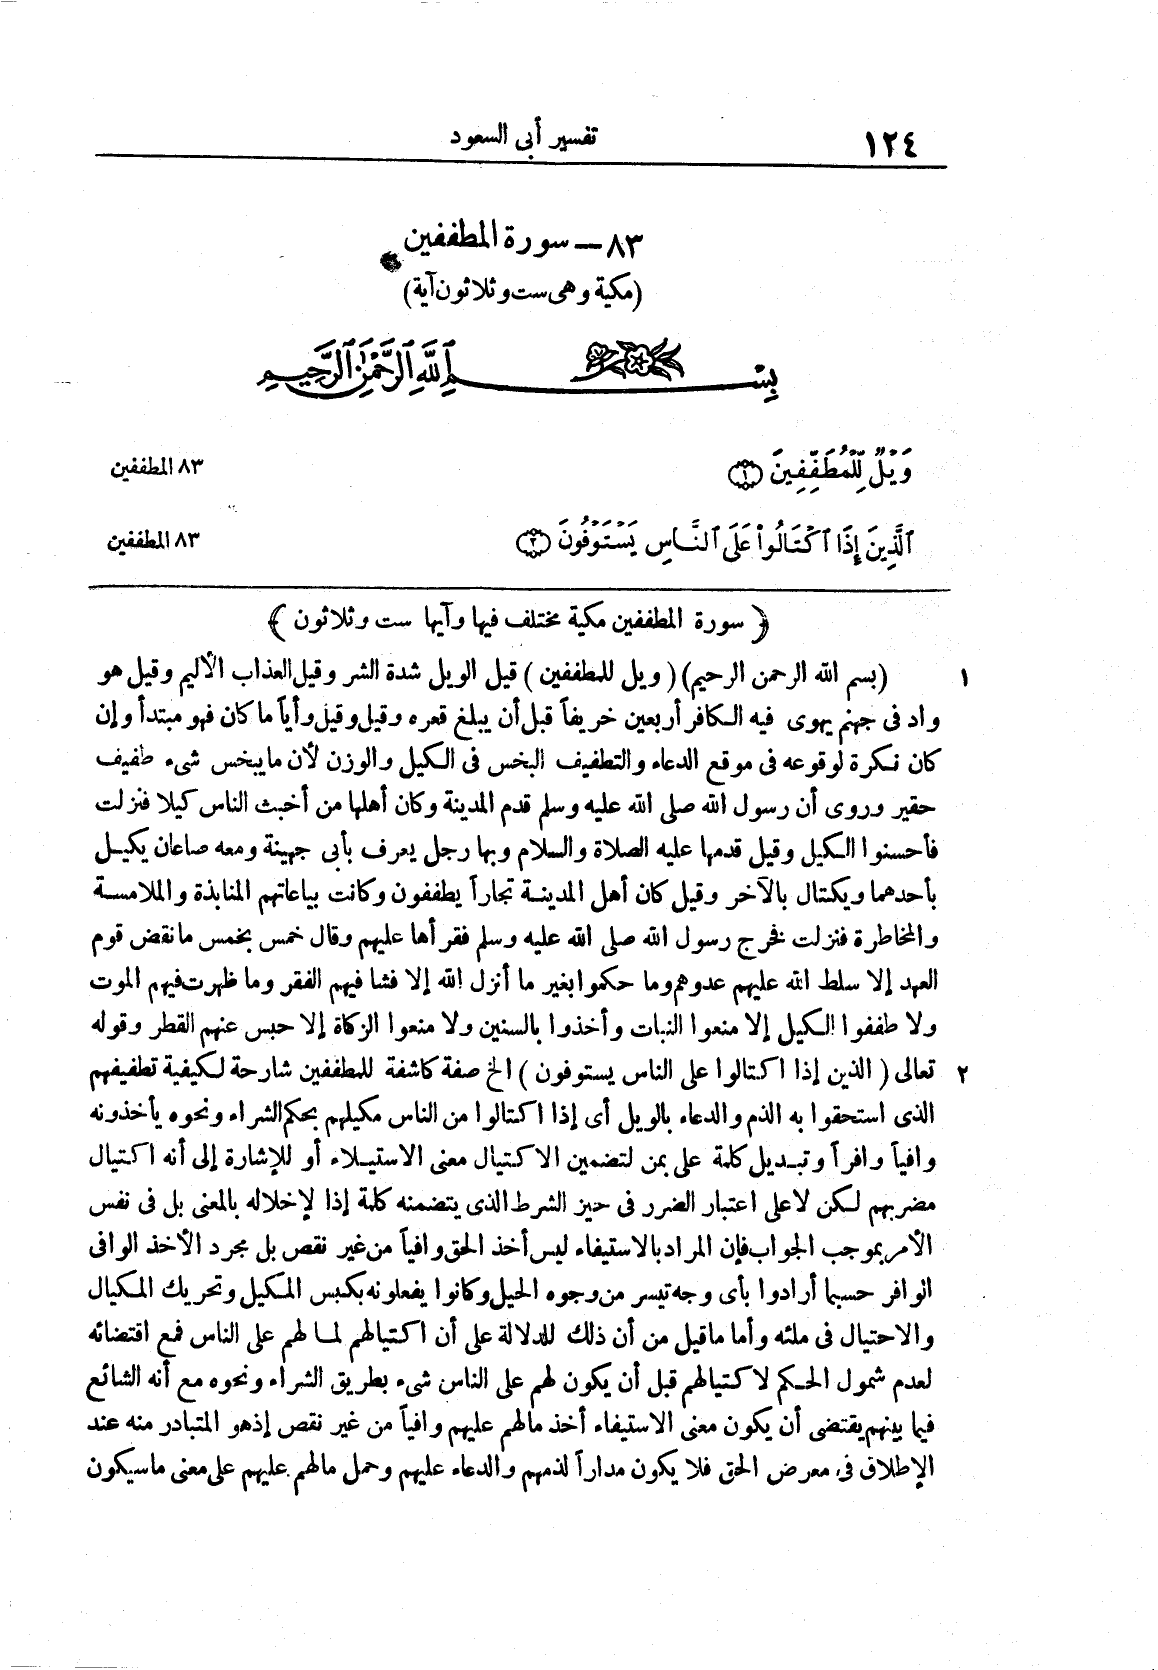 ١٢٤ تفسير أبى السعود
٨٣ — سورة المطففين
(مكية وهى ست وثلاثون آية)
بِسْمِ ٱللَّهِ ٱلرَّحْمَٰنِ ٱلرَّحِيمِ
وَيْلٌ لِّلْمُطَفِّفِينَ ﴿١﴾ ٨٣ المطففين
ٱلَّذِينَ إِذَا ٱكْتَالُوا۟ عَلَى ٱلنَّاسِ يَسْتَوْفُونَ ﴿٢﴾ ٨٣ المطففين
﴿ سورة المطففين مكية مختلف فيها وآيها ست وثلاثون ﴾
١ (بسم الله الرحمن الرحيم) (ويل للمطففين) قيل الويل شدة الشر وقيل العذاب الأليم وقيل هو
واد فى جهنم يهوى فيه الكافر أربعين خريفاً قبل أن يبلغ قعره وقيل وقيل وأياً ما كان فهو مبتدأ وإن
كان نكرة لوقوعه فى موقع الدعاء والتطفيف البخس فى الكيل والوزن لأن ما يبخس شىء طفيف
حقير وروى أن رسول الله صلى الله عليه وسلم قدم المدينة وكان أهلها من أخبث الناس كيلا فنزلت
فأحسنوا الكيل وقيل قدمها عليه الصلاة والسلام وبها رجل يعرف بأبى جهينة ومعه صاعان يكيل
بأحدهما ويكتال بالآخر وقيل كان أهل المدينة تجاراً يطففون وكانت بياعاتهم المنابذة والملامسة
والمخاطرة فنزلت فخرج رسول الله صلى الله عليه وسلم فقرأها عليهم وقال خمس بخمس ما نقض قوم
العهد إلا سلط الله عليهم عدوهم وما حكموا بغير ما أنزل الله إلا فشا فيهم الفقر وما ظهرت فيهم الموت
ولا طففوا الكيل إلا منعوا النبات وأخذوا بالسنين ولا منعوا الزكاة إلا حبس عنهم القطر وقوله
٢ تعالى (الذين إذا اكتالوا على الناس يستوفون) الخ صفة كاشفة للمطففين شارحة لكيفية تطفيفهم
الذى استحقوا به الذم والدعاء بالويل أى إذا اكتالوا من الناس مكيلهم بحكم الشراء ونحوه يأخذونه
وافياً وافراً وتبديل كلمة على بمن لتضمين الاكتيال معنى الاستيلاء أو للإشارة إلى أنه اكتيال
مضربهم لكن لا على اعتبار الضرر فى حيز الشرط الذى يتضمنه كلمة إذا لإخلاله بالمعنى بل فى نفس
الأمر بموجب الجواب فإن المراد بالاستيفاء ليس أخذ الحق وافياً من غير نقص بل مجرد الأخذ الوافى
الوافر حسبما أرادوا بأى وجه تيسر من وجوه الحيل وكانوا يفعلونه بكبس المكيل وتحريك المكيال
والاحتيال فى ملئه وأما ما قيل من أن ذلك للدلالة على أن اكتيالهم لما لهم على الناس فمع اقتضائه
لعدم شمول الحكم لاكتيالهم قبل أن يكون لهم على الناس شىء بطريق الشراء ونحوه مع أنه الشائع
فيما بينهم يقتضى أن يكون معنى الاستيفاء أخذ ما لهم عليهم وافياً من غير نقص إذ هو المتبادر منه عند
الإطلاق فى معرض الحق فلا يكون مداراً لذمهم والدعاء عليهم وحمل ما لهم عليهم على معنى ما سيكون